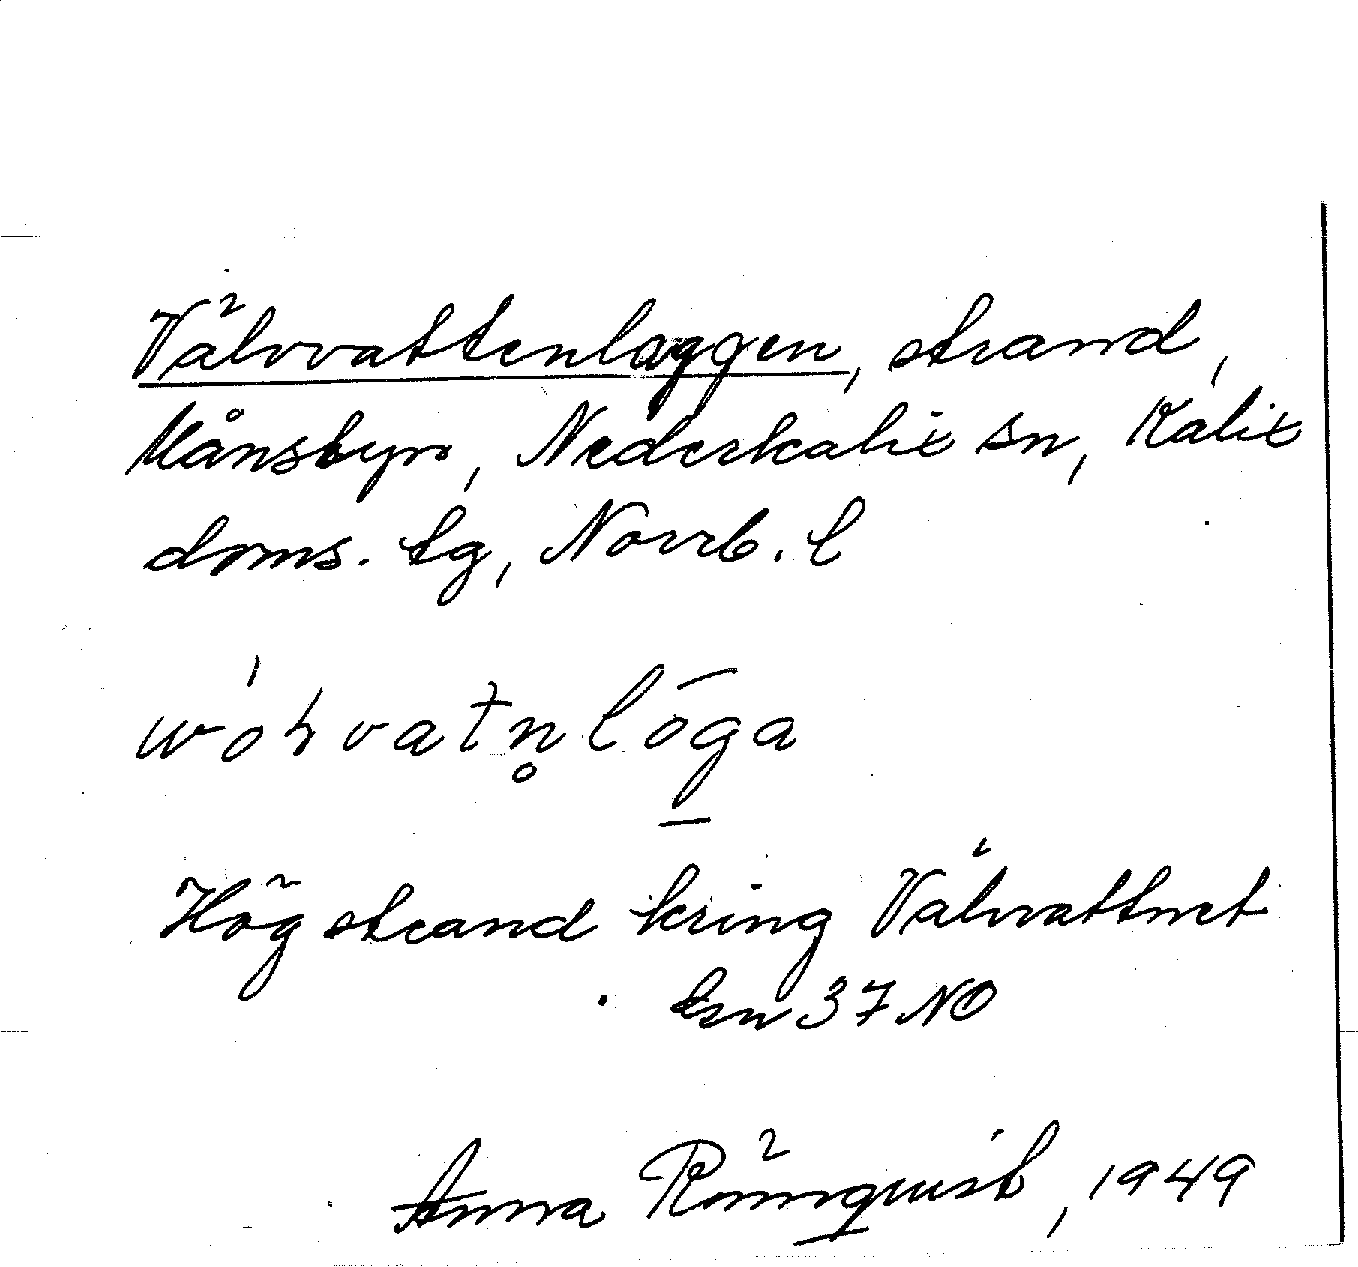 Välvvattenlaggen, strand,
Månsbyn, Nederkalix sn, Kalix
doms. tg, Norrb. l
Hög strand kring Välvvattnet
Esn 37 NO
Anna Rönnquist, 1949